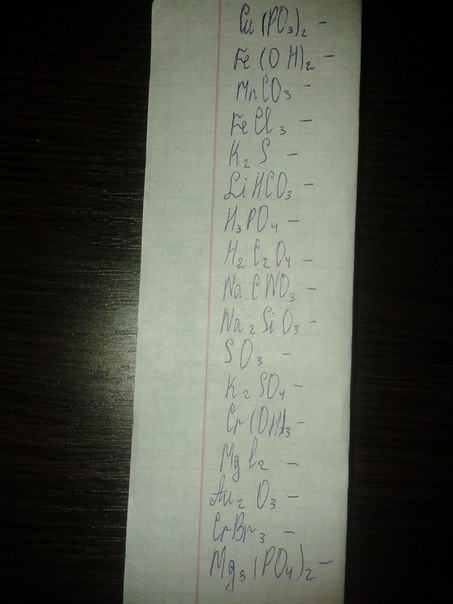 Cu(PO₃)₂ –
Fe(OH)₂ –
MnCO₃ –
FeCl₃ –
K₂S –
LiHCO₃ –
H₃PO₄ –
H₂C₂O₄ –
NaCNO₃ –
Na₂SiO₃ –
SO₃ –
K₂SO₄ –
Cr(OH)₃ –
MgI₂ –
Au₂O₃ –
CrBr₃ –
Mg₃(PO₄)₂ –